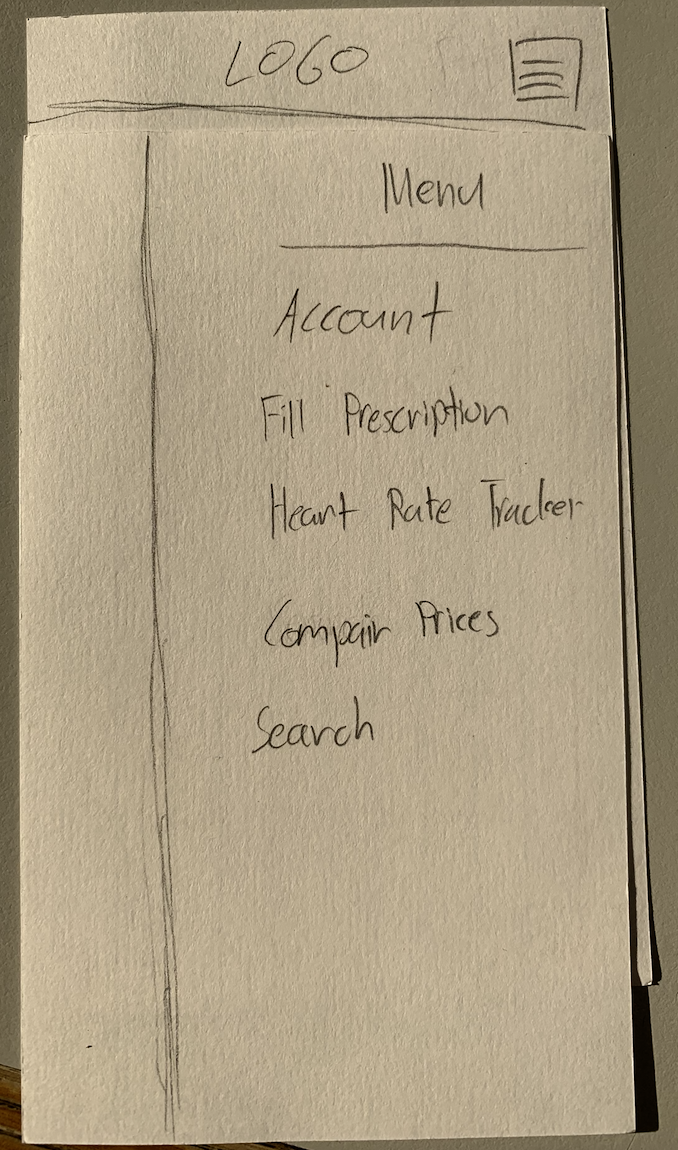 LOGO
Menu
Account
Fill Prescription
Heart Rate Tracker
Compair Prices
Search